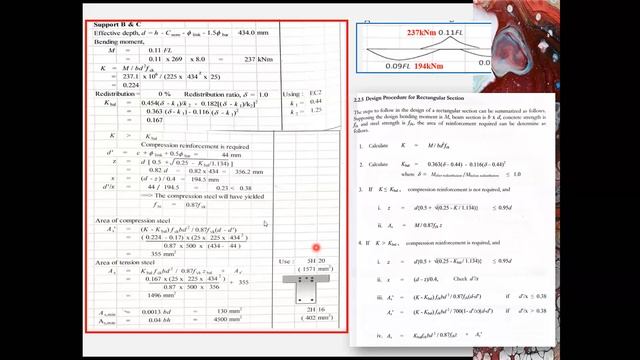 Support B & C
Effective depth, d = h - Cnom - ϕlink - 1.5ϕbar 434.0 mm
Bending moment,
M = 0.11 FL
= 0.11 x 269 x 8.0 = 237 kNm
K = M / bd²fck
= 237.1 x 10⁶ / (225 x 434² x 25)
= 0.224
Redistribution = 0 % Redistribution ratio, δ = 1.0
Kbal = 0.454(δ - k1)/k2 - 0.182[(δ - k1)/k2]²
= 0.363 (δ - k1) - 0.116 (δ - k1)²
= 0.167
Using : EC7
k1 = 0.44
k2 = 1.25
K > Kbal
Compression reinforcement is required
d' = c + ϕlink + 0.5ϕbar = 44 mm
z = d [ 0.5 + √0.25 - Kbal/1.134) ]
= 0.82 d = 0.82 x 434 = 356.2 mm
x = (d - z) / 0.4 = 194.5 mm
d'/x = 44 / 194.5 = 0.23 < 0.38
==> The compression steel will have yielded
fsc = 0.87fyk
Area of compression steel
As' = (K - Kbal) fck bd² / 0.87fyk (d - d')
= (0.224 - 0.17) x (25 x 225 x 434²)
0.87 x 500 x (434 - 44)
= 355 mm²
Area of tension steel
As = Kbal fck bd² / 0.87fyk zbal + As'
= 0.167 x (25 x 225 x 434²) + 355
0.87 x 500 x 356
= 1496 mm²
As,min = 0.0013 bd = 130 mm²
As,max = 0.04 bh = 4500 mm²
Use : 5H 20
(1571 mm²)
2H 16
(402 mm²)
237kNm
0.11FL
0.09FL 194kNm
2.2.5 Design Procedure for Rectangular Section
The steps to follow in the design of a rectangular section can be summarized as follows.
Supposing the design bending moment is M, beam section is b x d, concrete strength is
fck and steel strength is fyk, the area of reinforcement required can be determine as
follows.
1. Calculate K = M/ bd²fck
2. Calculate Kbal = 0.363(δ - 0.44) - 0.116(δ - 0.44)²
where δ = Mafter redistribution/Mbefore redistribution ≤ 1.0
3. If K ≤ Kbal, compression reinforcement is not required, and
i. z = d[0.5 + √(0.25 - K / 1.134)] ≤ 0.95d
ii. As = M / 0.87fyk z
4. If K > Kbal, compression reinforcement is required, and
i. z = d[0.5 + √(0.25 - Kbal/1.134)] ≤ 0.95d
ii. x = (d - z)/0.4, Check d'/x
iii. As' = (K - Kbal) fck bd² / 0.87fyk(d-d') if d'/x ≤ 0.38
As' = (K - Kbal) fck bd² / 700(1-d'/x)(d-d') if d'/x > 0.38
iv. As = Kbal fck bd² / 0.87fyk z + As'